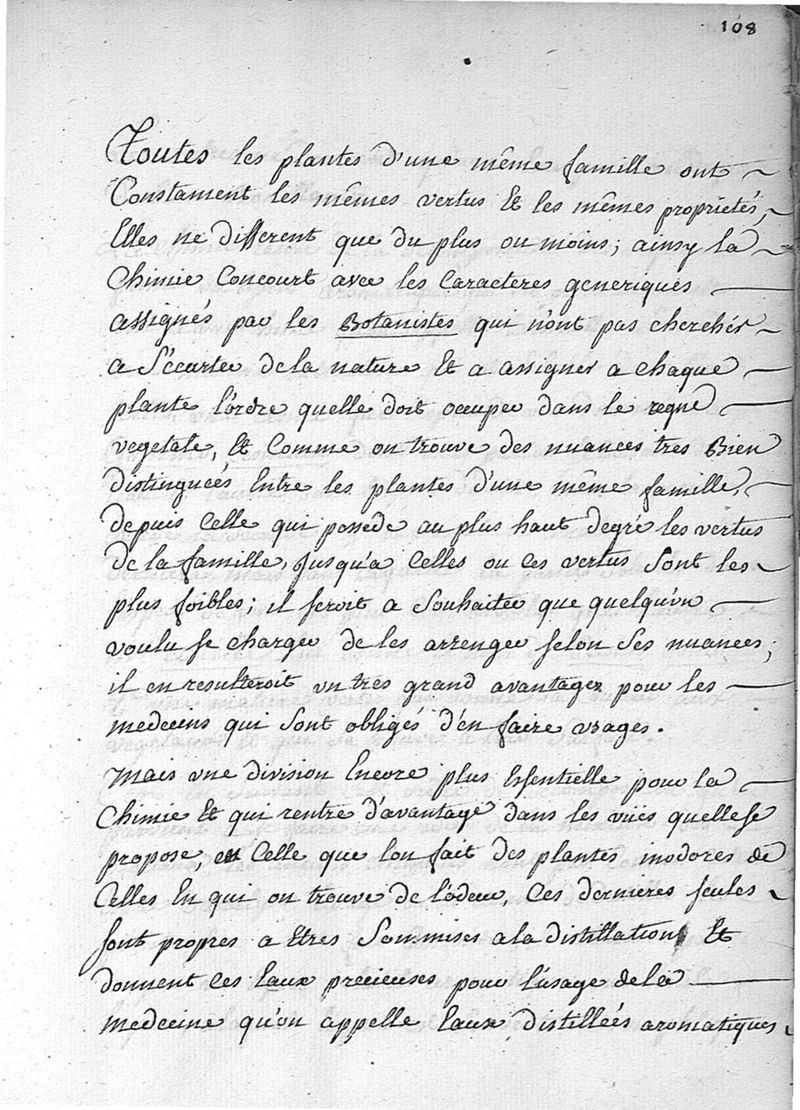 108
Toutes les plantes d'une même famille ont
Constament les mêmes vertus Et les mêmes proprietés,
Elles ne different que du plus ou moins; ainsy la
Chimie Concourt avec les Caracteres generiques
assignés par les Botanistes qui n'ont pas cherchér
a S'écarter dela nature Et a assigner a chaque
plante l'ordre quelle doit occuper dans le regne
vegetale, Et Comme on trouve des nuances tres Bien
distinguées Entre les plantes d'une même famille,
depuis Celle qui possede au plus haut degré les vertus
de la famille, Jusqu'a Celles ou Ces vertus Sont les
plus foibles; il seroit a Souhaiter que quelqu'un
voulu se charger de les arrenger selon Ses nuances;
il en resulteroit un tres grand avantage pour les
medecins qui Sont obligés d'en faire usages.
Mais une division Encore plus Essentielle pour la
Chimie Et qui rentre d'avantage dans les vües quelle se
propose, est Celle que lon fait des plantes inodores de
Celles En qui on trouve de l'odeur, Ces dernieres seules
sont propres a Etres Sommises a la distillation Et
donnent Ces Eaux precieuses pour l'usage dela
Medecine qu'on appelle Eaux distillées aromatiques.